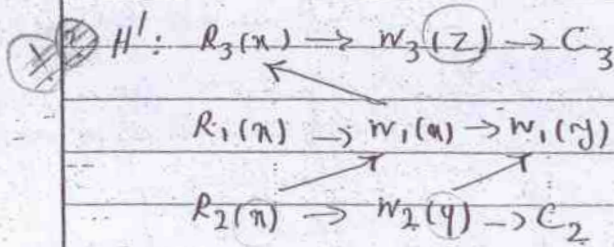 H': R₃(x) → W₃(Z) → C₃
R₁(x) → W₁(x) → W₁(y)
R₂(x) → W₂(y) → C₂